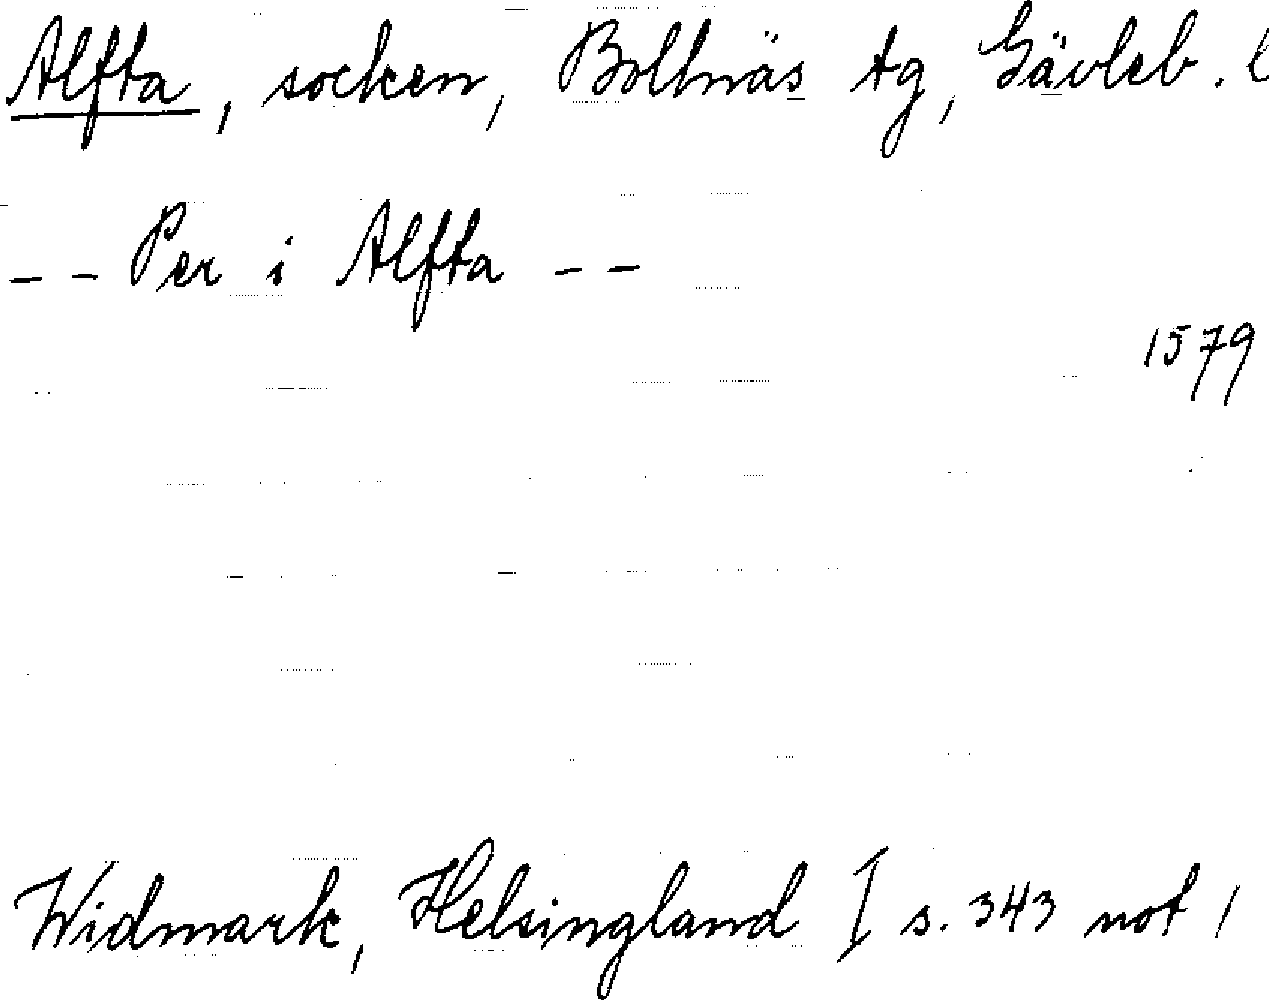 Alfta, socken, Bollnäs tg, Gävleb. l
-- Per i Alfta --
1579
Widmark, Helsingland I s. 343 not 1